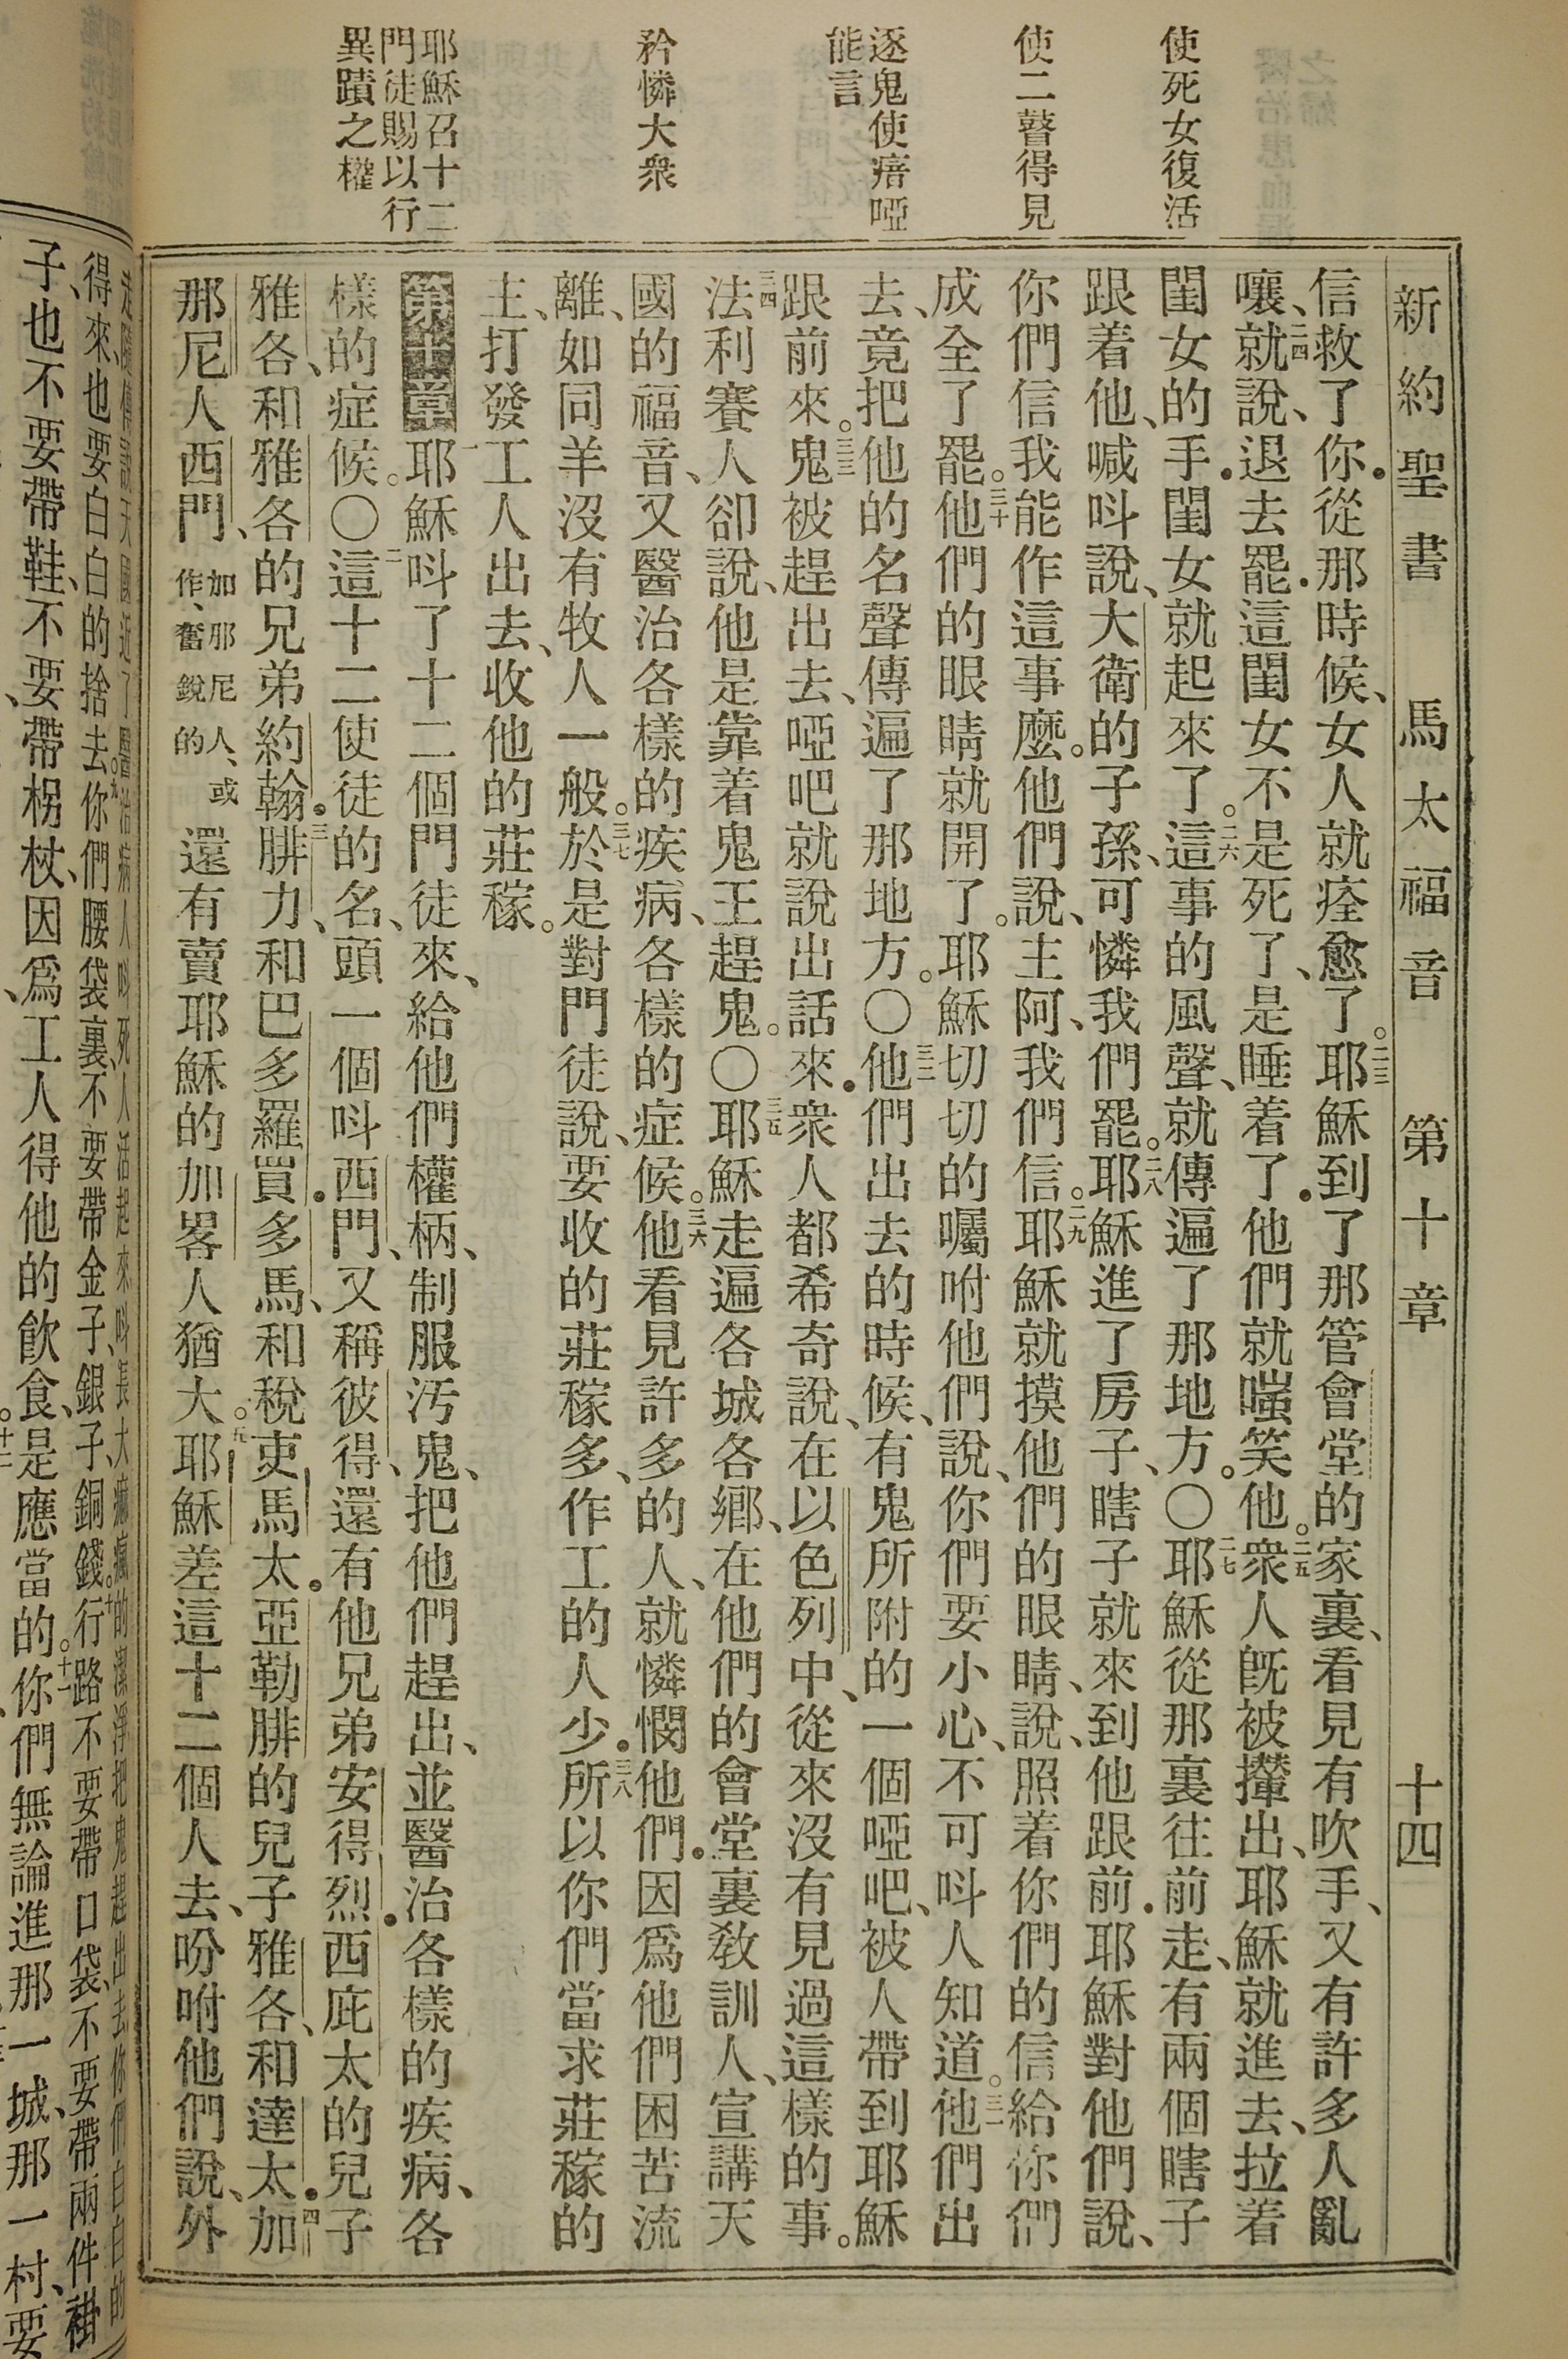 新約聖書　馬太福音　第十章　十四
使死女復活
使二瞽得見
逐鬼使瘖啞
能言
矜憐大衆
耶穌召十二
門徒賜以行
異蹟之權
信救了你．從那時候、女人就痊愈了。二三耶穌到了那管會堂的家裏、看見有吹手、又有許多人亂
嚷、二四就說、退去罷．這閨女不是死了、是睡着了．他們就嗤笑他。二五衆人旣被攆出、耶穌就進去、拉着
閨女的手．閨女就起來了。二六這事的風聲、就傳遍了那地方。〇二七耶穌從那裏往前走、有兩個瞎子
跟着他、喊呌說、大衛的子孫、可憐我們罷。二八耶穌進了房子、瞎子就來到他跟前．耶穌對他們說、
你們信我能作這事麼。他們說、主阿、我們信。二九耶穌就摸他們的眼睛、說、照着你們的信給你們
成全了罷。三十他們的眼睛就開了。耶穌切切的囑咐他們說、你們要小心、不可呌人知道。三一他們出
去、竟把他的名聲傳遍了那地方。〇三二他們出去的時候、有鬼所附的一個啞吧、被人帶到耶穌
跟前來。三三鬼被趕出去、啞吧就說出話來．衆人都希奇說、在以色列中、從來沒有見過這樣的事。
三四法利賽人卻說、他是靠着鬼王趕鬼。〇三五耶穌走遍各城各鄉、在他們的會堂裏敎訓人、宣講天
國的福音、又醫治各樣的疾病、各樣的症候。三六他看見許多的人、就憐憫他們．因爲他們困苦流
離、如同羊沒有牧人一般。三七於是對門徒說、要收的莊稼多、作工的人少．三八所以你們當求莊稼的
主、打發工人出去、收他的莊稼。
第十章　一耶穌呌了十二個門徒來、給他們權柄、制服汚鬼、把他們趕出、並醫治各樣的疾病、各
樣的症候。〇二這十二使徒的名、頭一個呌西門、又稱彼得、還有他兄弟安得烈．西庇太的兒子
雅各、和雅各的兄弟約翰．三腓力、和巴多羅買．多馬、和稅吏馬太．亞勒腓的兒子雅各、和達太．四加
那尼人西門、加那尼人、或作、奮銳的還有賣耶穌的加畧人猶大。五耶穌差這十二個人去、吩咐他們說、外
得來、也要白白的捨去。九你們腰袋裏、不要帶金子、銀子、銅錢。十行路不要帶口袋、不要帶兩件褂
子、也不要帶鞋、不要帶柺杖、因爲工人得他的飮食、是應當的。十一你們無論進那一城、那一村、要